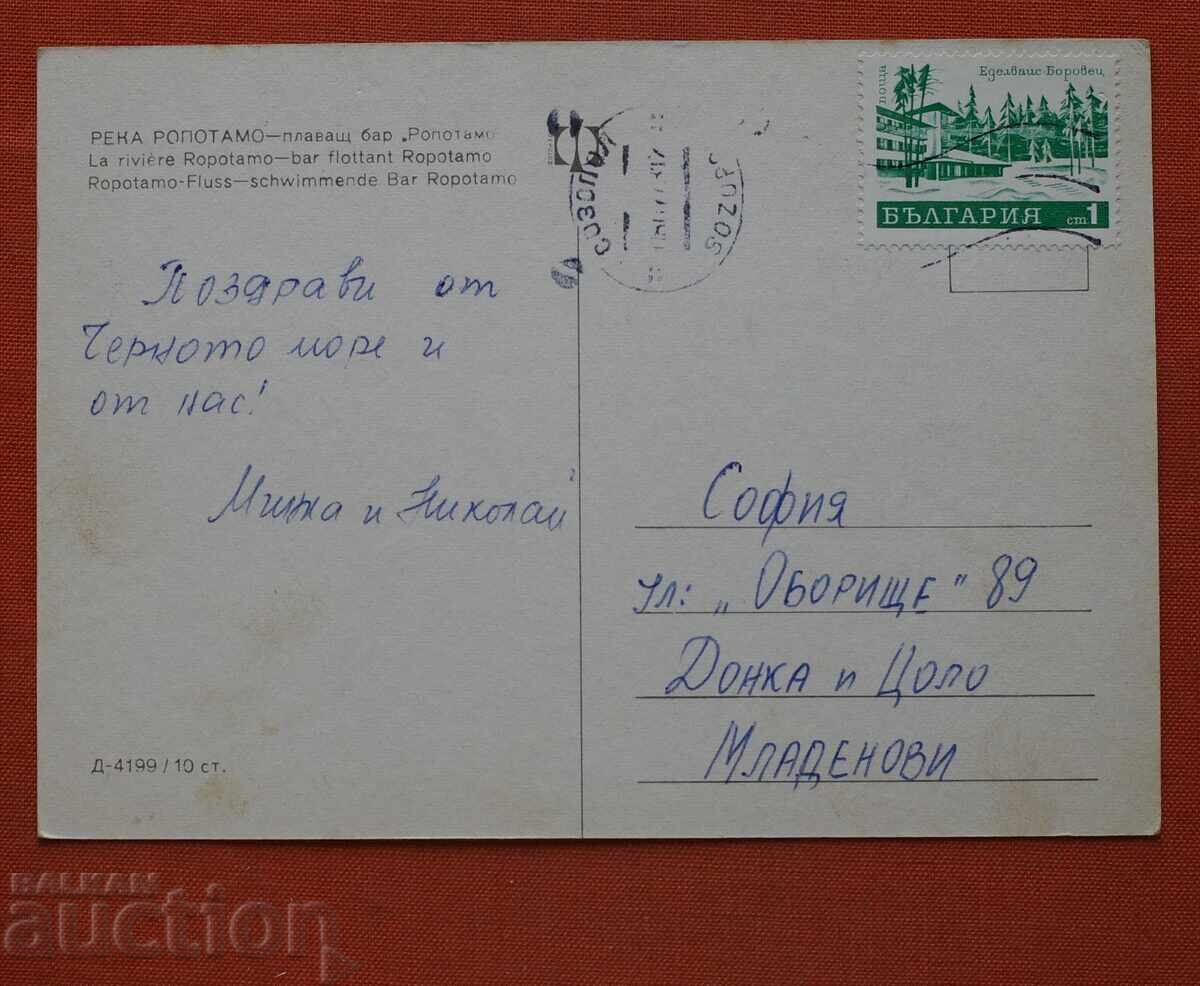 РЕКА РОПОТАМО—плаващ бар „Ропотамо
La rivière Ropotamo—bar flottant Ropotamo
Ropotamo-Fluss—schwimmende Bar Ropotamo
Поздрави от
Черното море и
от нас!
Минка и Николай
Д-4199 / 10 ст.
СОЗОПОЛ
SOZOPOL
поща
Еделвайс-Боровец
БЪЛГАРИЯ ст 1
София
ул: „Оборище" 89
Донка и Цоло
Младенови
BALKAN
auction